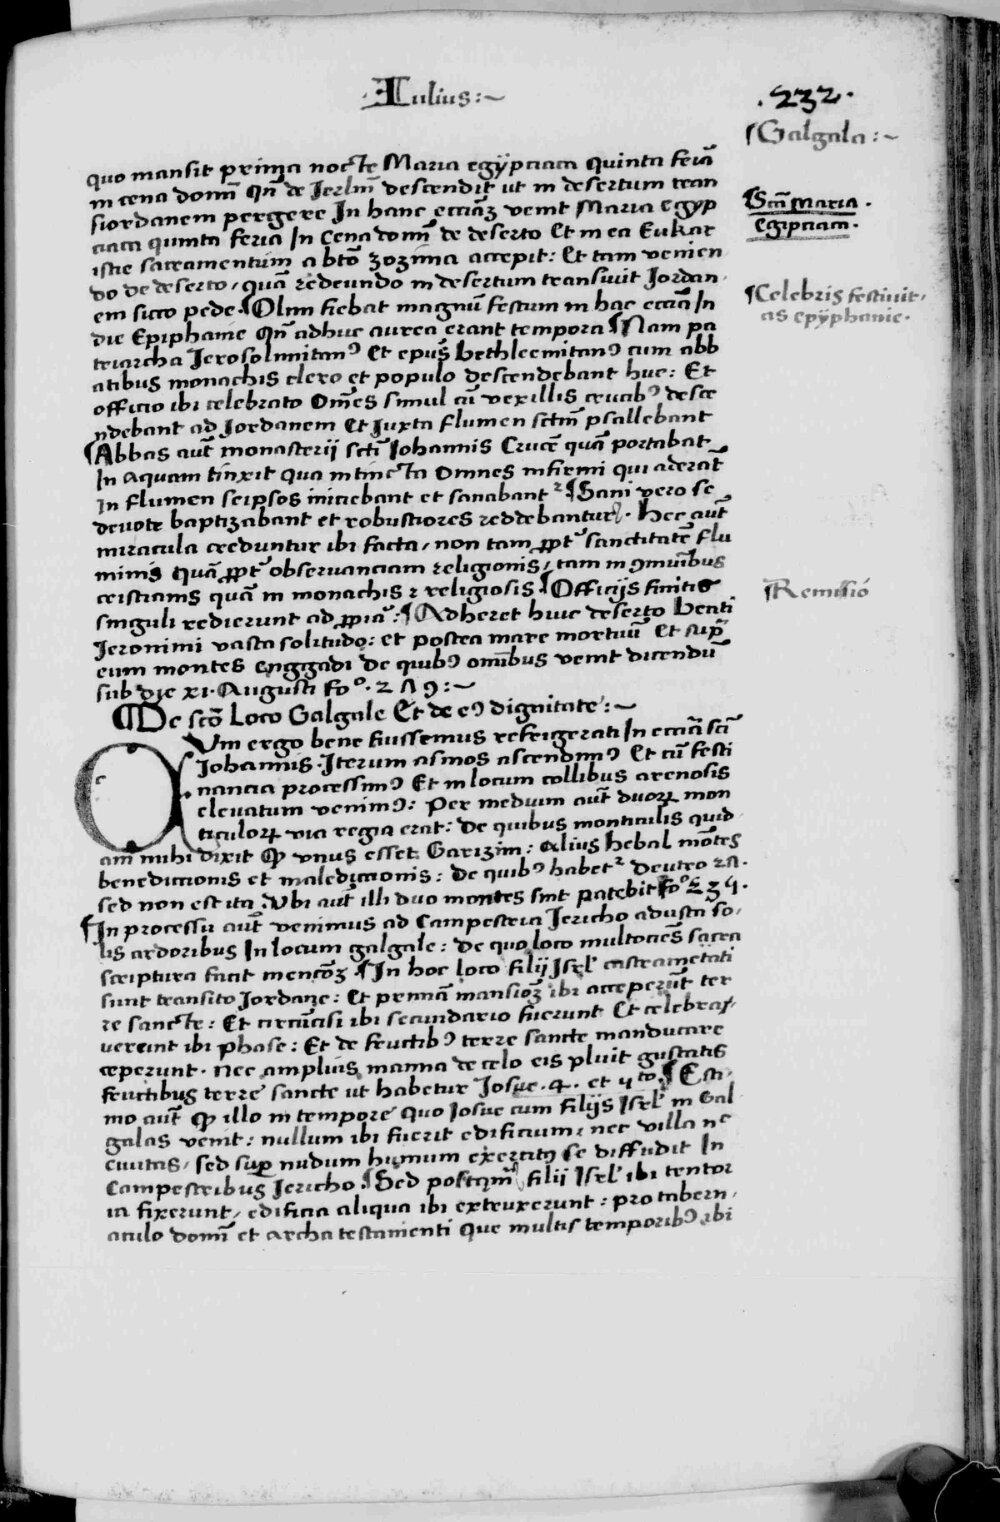 Iulius:~
.232.
¶Galgala:~
quo mansit prima nocte Maria egÿptiaca quinta feria
in cena domī qn̄ de Jerlm̄ descendit ut in desertum tran
siordanem pergere In hanc eccīaꝫ venit Maria egyp
ciaca quinta feria In Cena domī de deserto Et in ea Eukar
istie sacramentum a btō zozima accepit: Et tam venien
do de deserto, quā redeundo in desertum transivit Jordan
em sicco pede. ¶Olim fiebat magnū festum in hac eccīa In
die Epiphanie qn̄ adhuc aurea erant tempora ¶Nam pa
triarcha Jerosolimitanꝰ Et epūs bethleemitanꝰ cum abb
atibus monachis clero et populo descendebant huc: Et
officio ibi celebrato Om̄es simul cū vexillis crucibꝰ desce
ndebant ad Jordanem Et Juxta flumen sctm̄ psallebant
¶Abbas aut̄ monasterij scti Iohannis Crucē quā portabat
In aquam tinxit qua intincta Omnes infirmi qui aderāt
In flumen seipsos iniciebant et sanabantᷣ ¶Sani vero se
devote baptizabant et robustiores reddebantur. Hec aut̄
miracula creduntur ibi facta, non tam ꝓpt̄ sanctitatē flu
minis quā ꝓpt̄ observanciam religionis, tam in ꝯmunībus
cristianis quā in monachis ⁊ religiosis. ¶Officijs finitis
singuli redierunt ad ꝓpia: ¶Adheret huic deserto beati
Jeronimi vasta solitudo: et postea mare mortuū Et sup̄
eum montes Enggadi de quibꝰ om̄ibus venit dicendū
sub die xi. Augusti fo. 259:~
¶De sctō Loco Galgale Et de eꝰ dignitate:~
CVm ergo bene fuissemus refrigerati In eccīa scti
Iohannis. Iterum asinos ascendimꝰ Et cū festi
nancia processimꝰ Et in locum collibus arenosis
elevatum venimꝰ: Per medium aut̄ duoꝝ mon
ticuloꝝ via regia erat: de quibus monticulis quid
am mihi dixit ꝙ vnus esset Garizim: alius hebal mōtes
benedictionis et maledictionis: de quibꝰ habetᷣ deutro 27.
sed non est ita. Vbi aut̄ illi duo montes sint patebit foº 234.
¶In processu aut̄ venimus ad Campestria Jericho adusta so,
lis ardoribus In locum galgale: de quo loco multociēs sacra
scriptura facit mencōꝫ ¶In hoc loco filij Isrl̄ castrametati
sunt transito Jordane: Et primā mansioꝫ ibi acceperūt ter
re sancte: Et circūcisi ibi secundario fuerunt Et celebra,
verunt ibi phase: Et de fructibꝰ terre sancte manducare
ceperunt. nec amplius manna de celo eis pluit gustatis
fructibus terre sancte ut habetur Josue. 4. et 5to. ¶Esti,
mo aut̄ ꝙ illo in tempore quo Josue cum filijs Isrl̄ in Gal
galas venit: nullum ibi fuerit edificium: nec villa nᶜ
Civitas, sed sup̄ nudum humum exercitꝰ se diffudit In
Campestribus Jericho. ¶Sed postqm̄ filij Isrl̄ ibi tentor
ia fixerunt, edificia aliqua ibi extruxerunt: pro tabern,
aculo domī et archa testamenti que multis temporibꝰ ibi
¶Scā Maria.
Egiptiaca.
¶Celebris festivit,
as epÿphanie.
¶Remissio